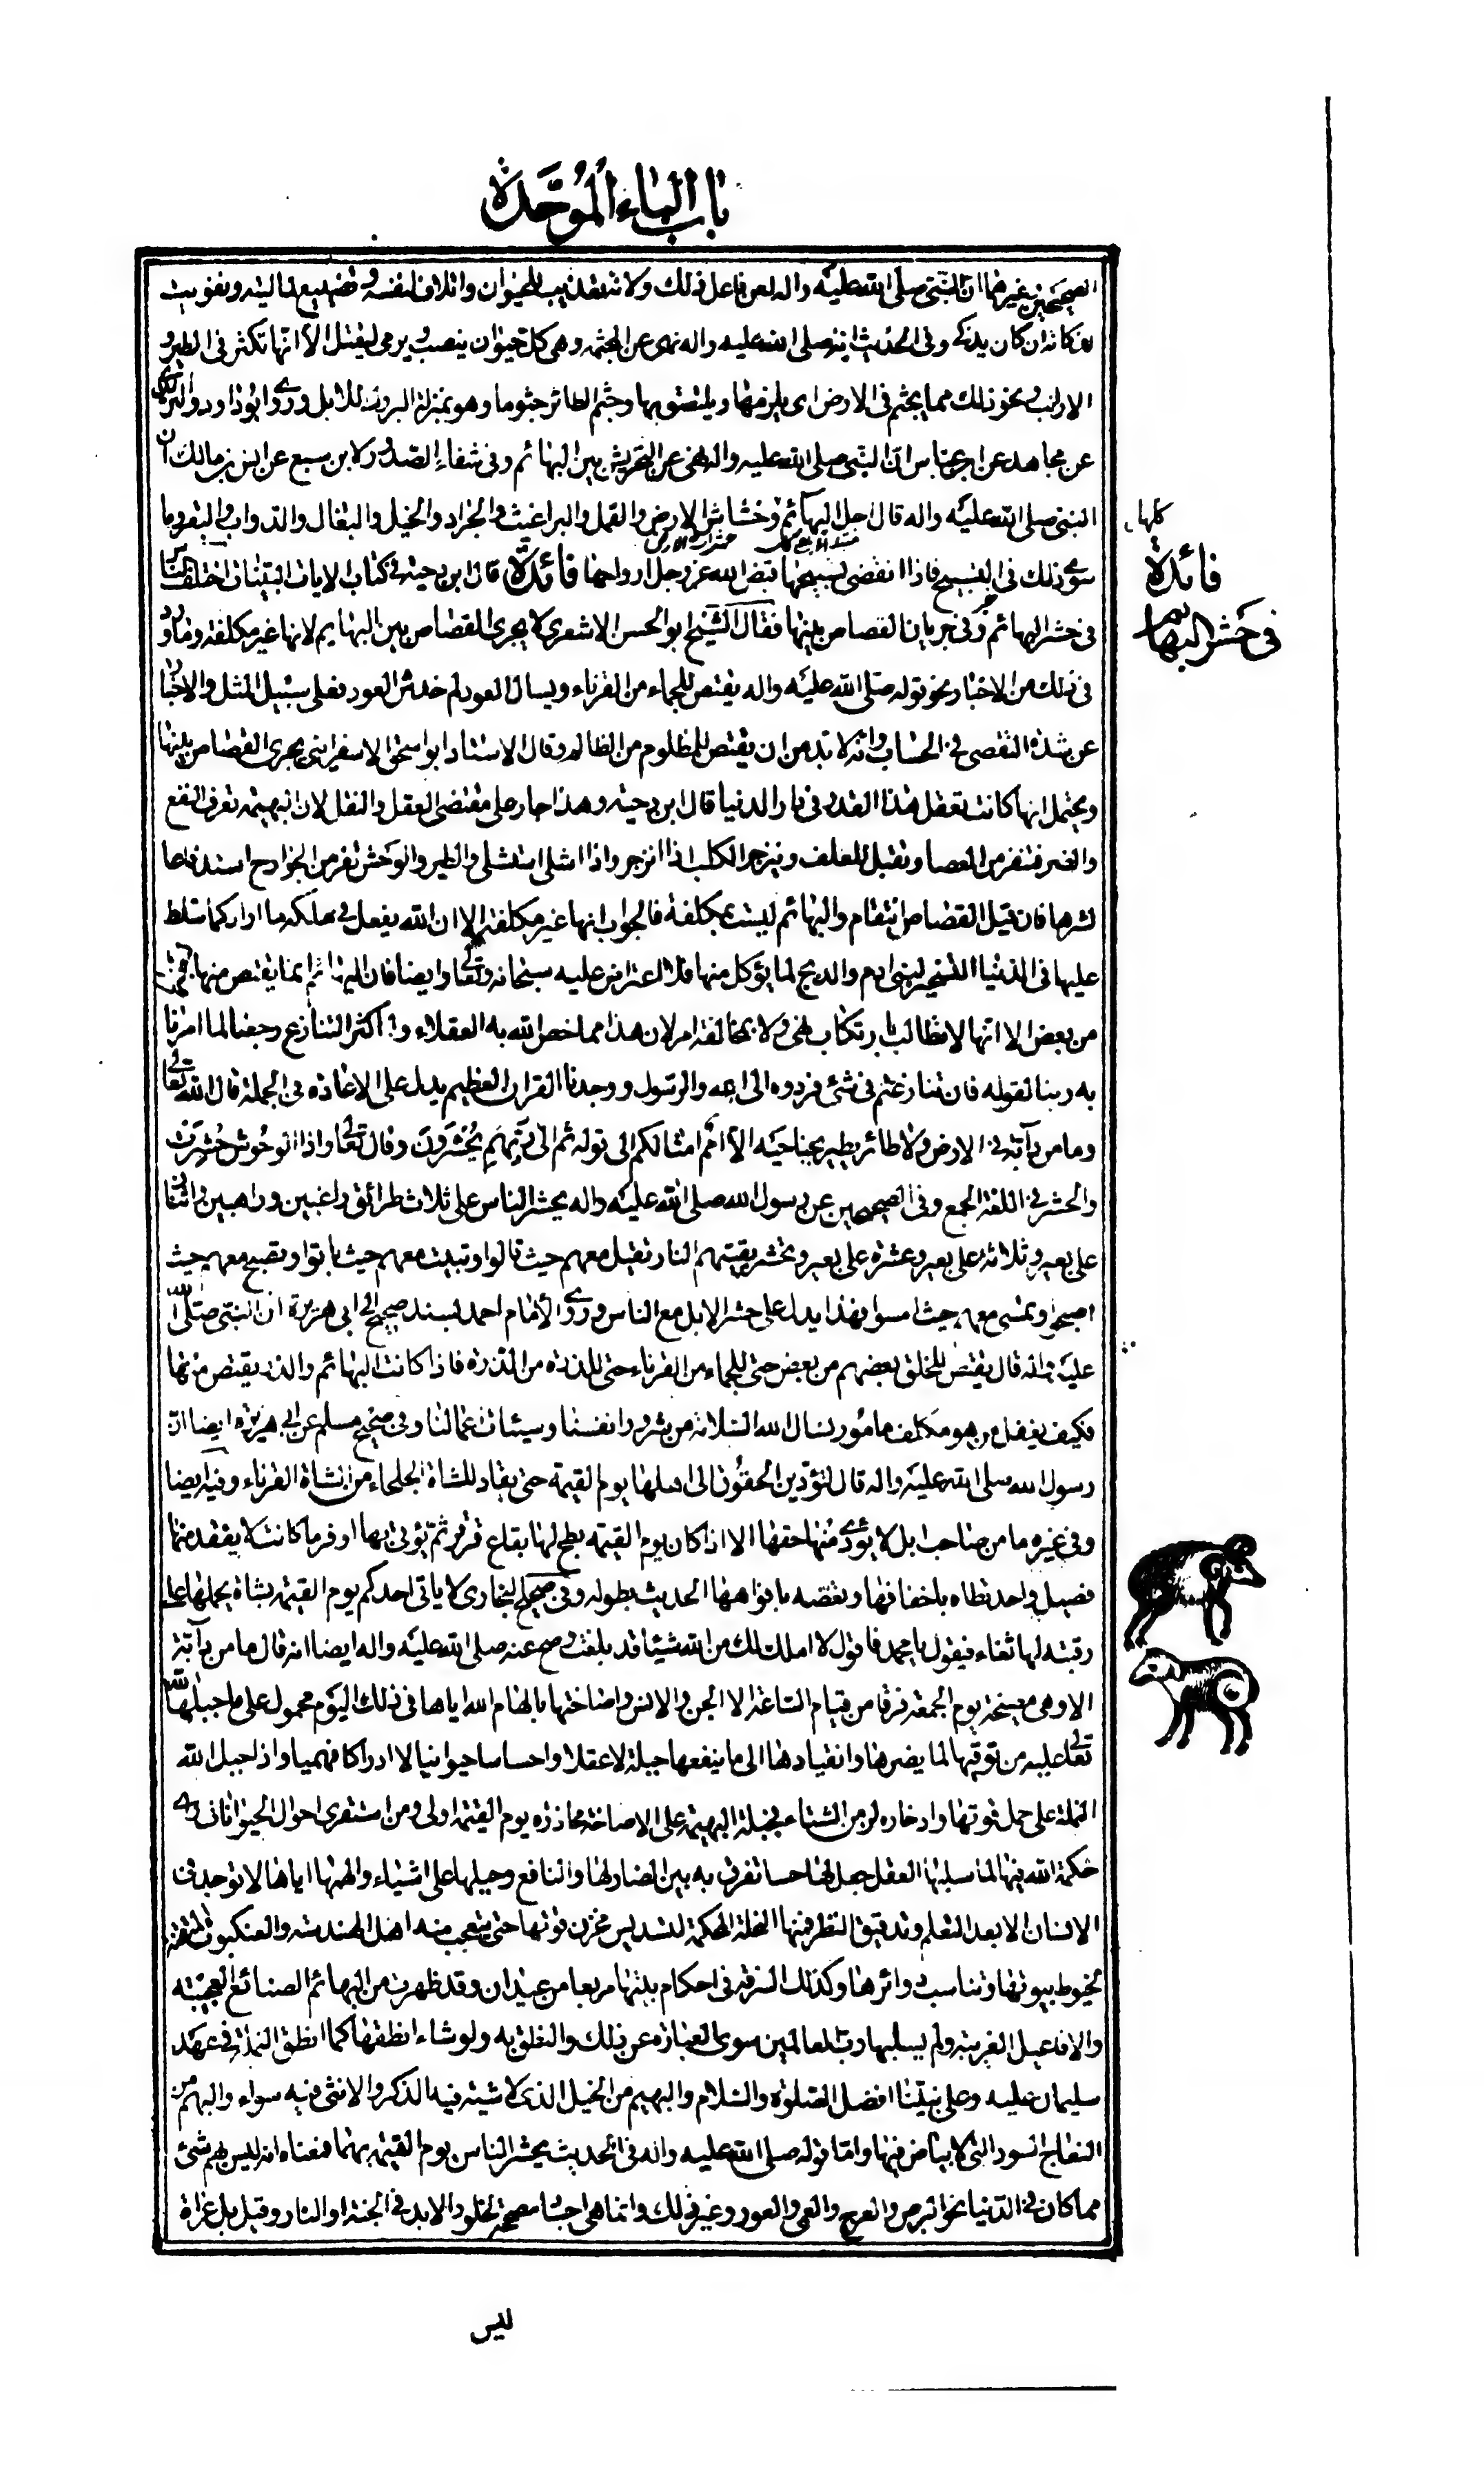 باب الباء الموحدة
الصحيحين وغيرهما ان النبى صلى الله عليه واله لعن فاعل ذلك ولانه تعذيب للحيوان واتلاف لنفسه وتضييع لماليته وتفويت
لذكاته ان كان يذكى وفى الحديث انه صلى الله عليه واله نهى عن المجثمه وهى كل حيوان ينصب ويرمى ليقتل الا انها تكثر فى الطير و
الارانب ونحو ذلك مما يجثم فى الارض اى يلزمها ويلتصق بها وجثم الطائر جثوما وهو بمنزلة البروك للابل وروى ابو داود والترمذى
عن مجاهد عن ابن عباس ان النبى صلى الله عليه واله نهى عن التحريش بين البهائم وفى شفاء الصدور لابن سبع عن انس بن مالك ان
النبى صلى الله عليه واله قال اجل البهائم وخشاش الارض والقمل والبراغيث والجراد والخيل والبغال والدواب والبقر وما
سوى ذلك فى التسبيح فاذا انقضى تسبيحها قبض الله عز وجل ارواحها فائدة قال ابن دحية فى كتاب الايات البينات اختلف الناس
فى حشر البهائم وفى جريان القصاص بينها فقال الشيخ ابو الحسن الاشعرى لا يجرى القصاص بين البهايم لانها غير مكلفة وما ورد
فى ذلك من الاخبار نحو قوله صلى الله عليه واله يقتص للجماء من القرناء ويسال العود لم خدش العود فعلى سبيل المثل والاخبار
عن شدة التقصى فى الحساب وانه لا بد من ان يقتص للمظلوم من الظالم وقال الاستاد ابو اسحق الاسفراينى يجرى القصاص بينها
ويحتمل انها كانت تعقل هذا القدر فى دار الدنيا قال ابن دحية وهذا جار على مقتضى العقل والنقل لان البهيمة تعرف النفع
والضر فتنفر من العصا وتقبل للعلف وينزجر الكلب اذا انزجر واذا اشلى استشلى والطير والوحش تفر من الجوارح استدفاعا
لشرها فان قيل القصاص انتقام والبهائم ليست بمكلفة فالجواب انها غير مكلفة الا ان الله يفعل فى ملكه ما اراد كما سلط
عليها فى الدنيا التسخير لبنى ادم والذبح لما يؤكل منها فلا اعتراض عليه سبحانه وتعالى وايضا فان البهائم انما يقتص منها بعض
من بعض الا انها لا تطالب بارتكاب نهى ولا بمخالفة امر لان هذا مما خص الله به العقلاء ولما كثر التنازع رجعنا لما امرنا
به ربنا لقوله فان تنازعتم فى شئ فردوه الى الله والرسول ووجدنا القران العظيم يدل على الاعادة فى الجملة قال الله تعالى
وما من دابة فى الارض ولا طائر يطير بجناحيه الا امم امثالكم الى قوله ثم الى ربهم يحشرون وقال تعالى واذا الوحوش حشرت
والحشر فى اللغة الجمع وفى الصحيحين عن رسول الله صلى الله عليه واله يحشر الناس على ثلاث طرائق راغبين وراهبين واثنان
على بعير وثلاثة على بعير وعشرة على بعير وتحشر بقيتهم النار تقيل معهم حيث قالوا وتبيت معهم حيث باتوا وتصبح معهم حيث
اصبحوا وتمسى معهم حيث امسوا فهذا يدل على حشر الابل مع الناس وروى الامام احمد بسند صحيح الى ابى هريرة ان النبى صلى الله
عليه واله قال يقتص للخلق بعضهم من بعض حتى للجماء من القرناء حتى للذرة من الذرة فاذا كانت البهائم والذر يقتص منها
فكيف يغفل من هو مكلف مامور نسال الله السلامة من شرور انفسنا وسيئات اعمالنا وفى صحيح مسلم عن ابى هريرة ايضا ان
رسول الله صلى الله عليه واله قال لتؤدين الحقوق الى اهلها يوم القيمة حتى يقاد للشاة الجلحاء من الشاة القرناء وفيه ايضا
وفى غيره ما من صاحب ابل لا يؤدى منها حقها الا اذا كان يوم القيمة بطح لها بقاع قرقر ثم يؤتى بها اوفر ما كانت لا يفقد منها
فصيل واحد تطاه باخفافها وتعضه بافواهها الحديث بطوله وفى صحيح البخارى لا ياتى احدكم يوم القيمة بشاة يحملها على
رقبته لها ثغاء فيقول يا محمد فاقول لا املك لك من الله شيئا قد بلغت وصح عنه صلى الله عليه واله ايضا انه قال ما من دابة
الا وهى مصيخة يوم الجمعة فرقا من قيام الساعة الا الجن والانس واصاختها بالهام الله اياها فى ذلك اليوم محمول على ما جبلها الله
تعالى عليه من توقيها لما يضرها وانقيادها الى ما ينفعها جبلة لا عقلا واحساسا حيوانيا لا ادراكا فهميا واذا جبل الله
النملة على حمل قوتها وادخاره لزمن الشتاء فجبلة البهيمة على الاصاخة محاذرة يوم القيمة اولى ومن استقرى احوال الحيوانات راى
حكمة الله فيها لما سلبها العقل جعل لها حسا تفرق به بين الضار لها والنافع وجبلها على اشياء والهمها اياها لا توجد فى
الانسان الا بعد التعلم وتدقيق النظر فمنها النحلة المحكمة لتسديس مخزن قوتها حتى يتعجب منه اهل الهندسة والعنكبوت المتقنة
لخيوط بيوتها وتناسب دوائرها وكذلك السرفة فى احكام بيتها مربعا من عيدان وقد ظهرت من البهائم الصنائع العجيبة
والافاعيل الغريبة ولم يسلبها رب العالمين سوى العبارة عن ذلك والنطق به ولو شاء انطقها كما انطق النملة فى عهد
سليمان عليه وعلى نبينا افضل الصلوة والسلام والبهيم من الخيل الذى لا شية فيه الذكر والانثى فيه سواء والبهيم من
النعاج السود التى لا بياض فيها واما قوله صلى الله عليه واله فى الحديث يحشر الناس يوم القيمة بهما فمعناه انه ليس بهم شئ
مما كان فى الدنيا نحو البرص والعرج والعمى والعور وغير ذلك وانما هى اجساد مصححة لخلود الابد فى الجنة او النار وقيل بل عراة
ليس
كلها
فائدة
فى حشر البهائم